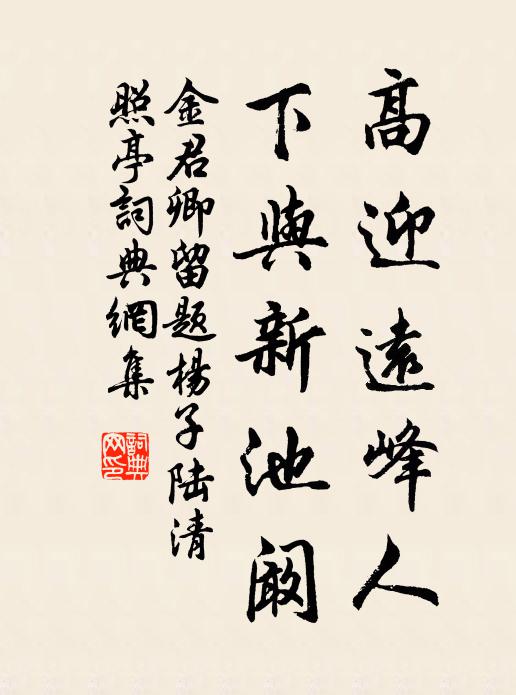 高迎遠峰人
下與新池闞
金君卿留題楊子陸清
照亭詞典網集
詞典
网印